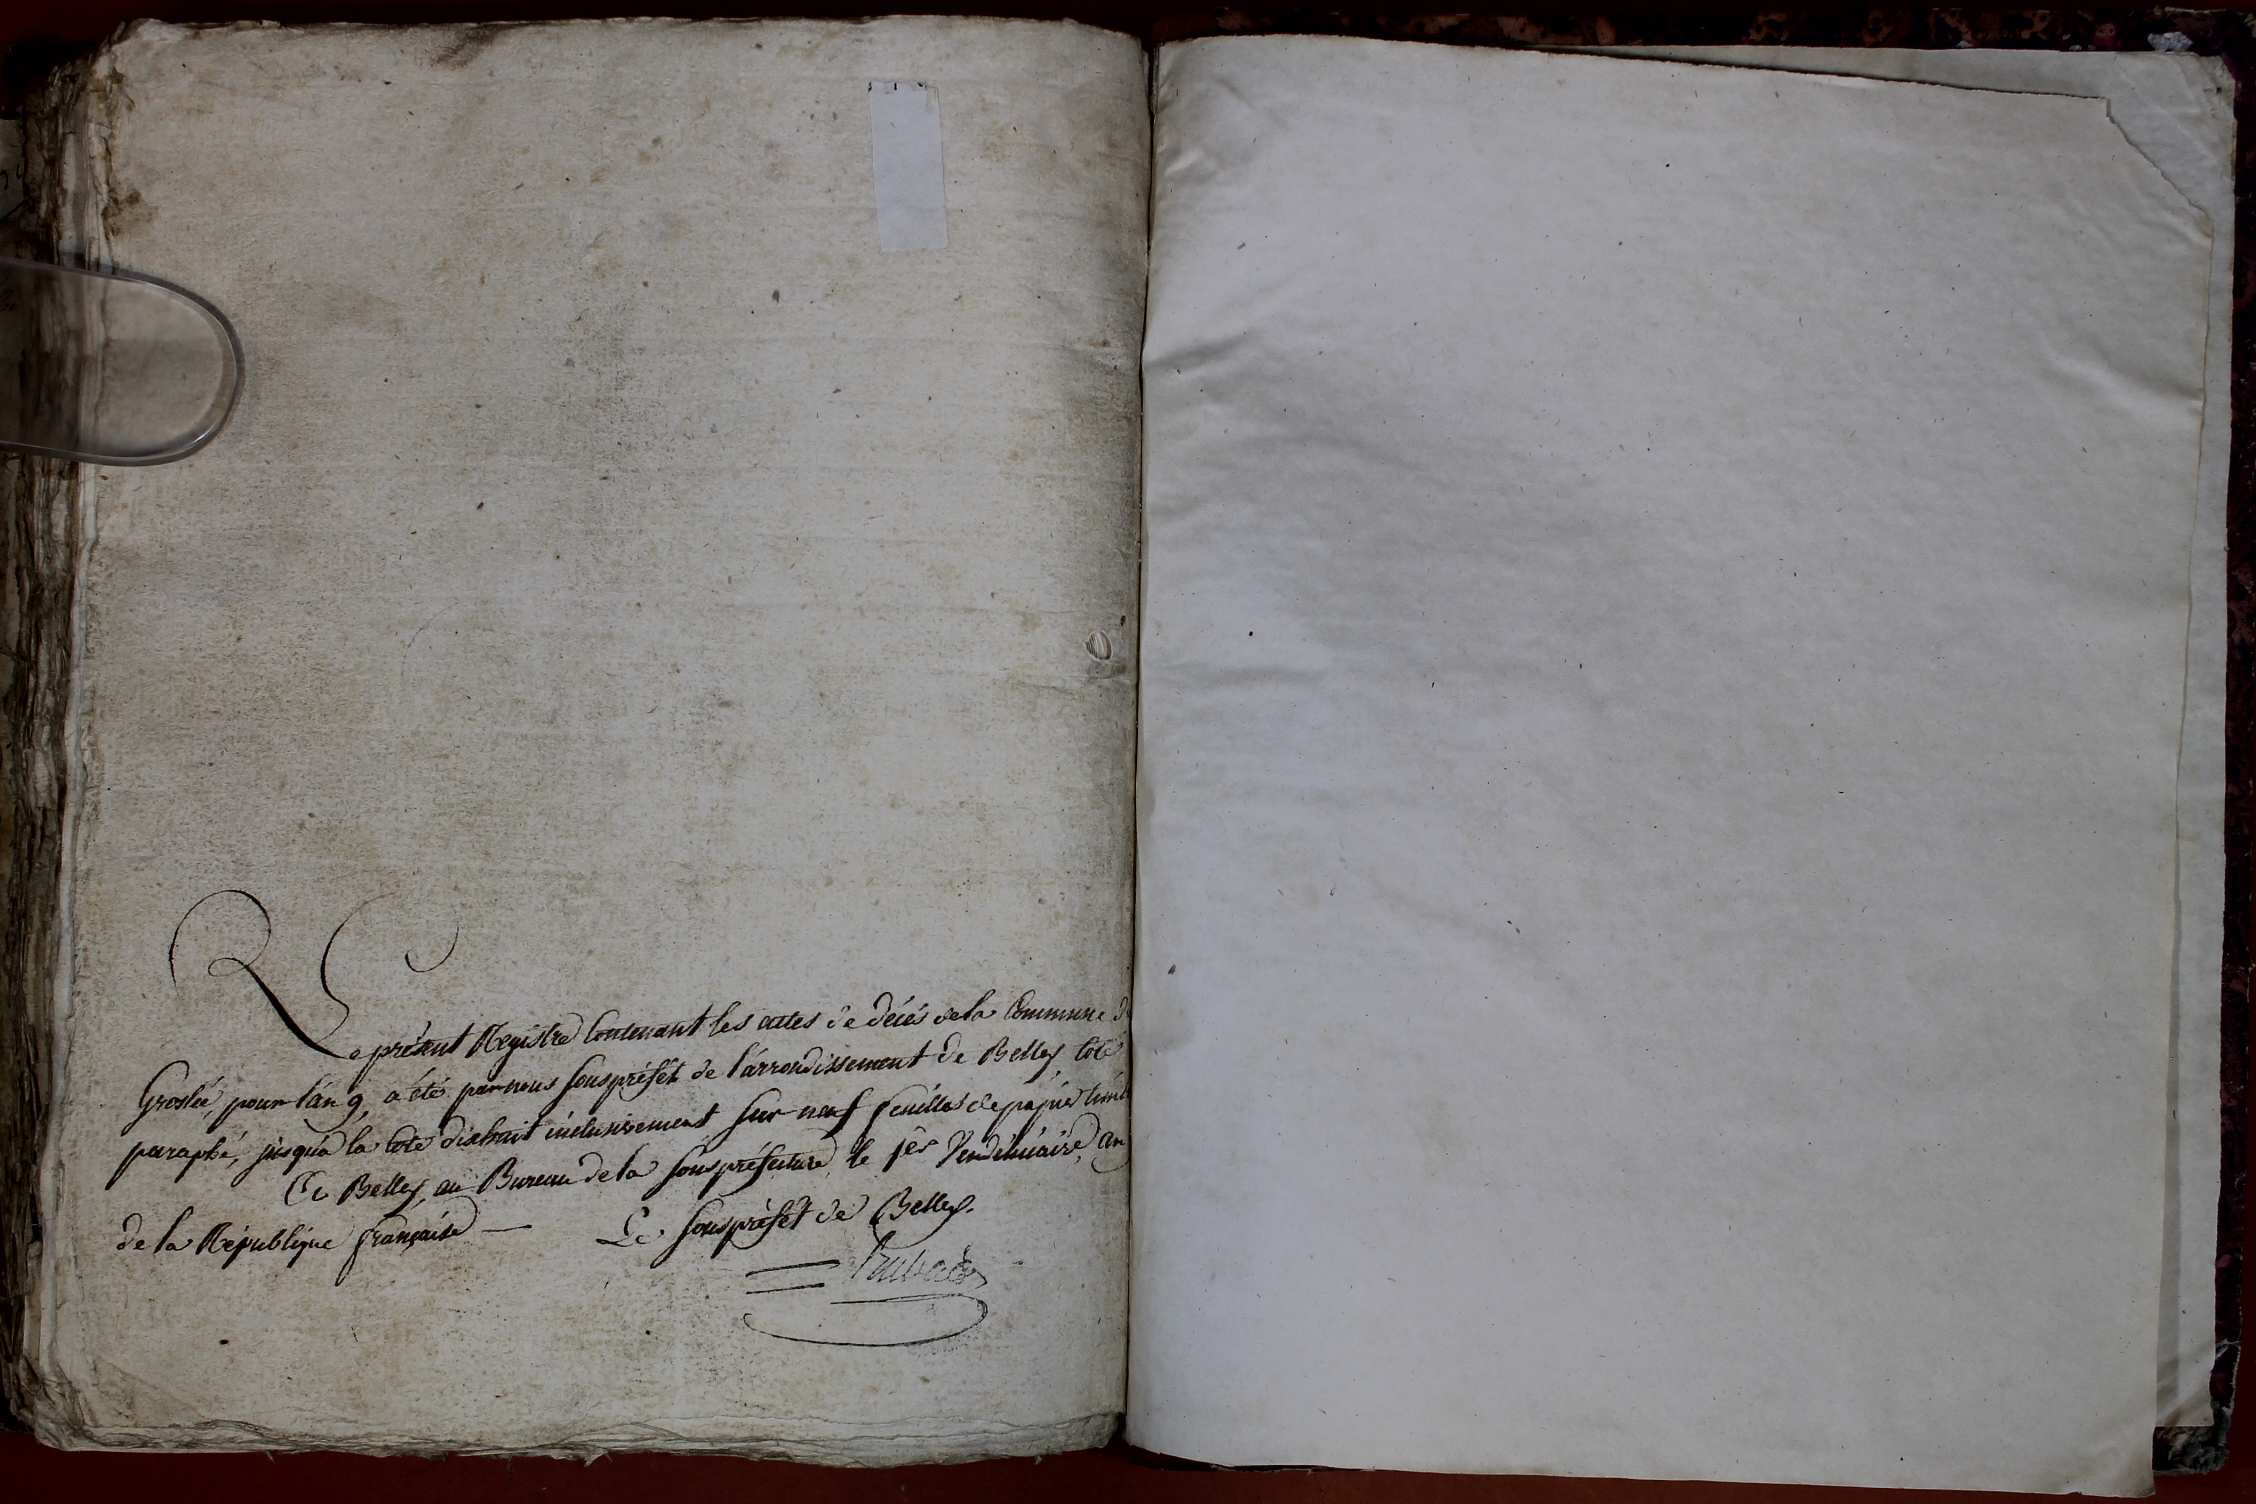 Le présent Registre Contenant les actes de décés de la Commune de
Groslée, pour l'an 9, a été par nous Souspréfet de l'arrondissement de Belley, Coté
paraphé, jusqu'a la Cote dixhuit inclusivement Sur neuf feuilles de papier timb
a Belley, au Bureau de la Souspréfecture, le 1er Vendémiaire, an
de la République française —
Le Souspréfet de Belley.